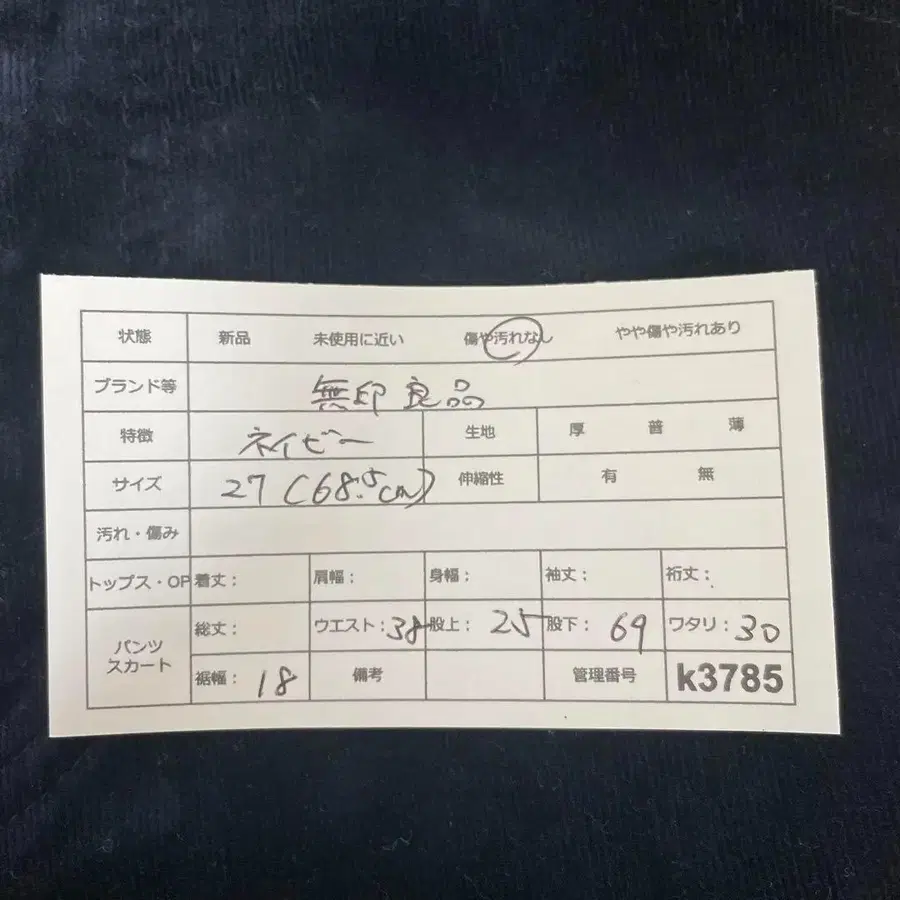 状態 新品 未使用に近い 傷や汚れなし やや傷や汚れあり
ブランド等 無印良品
特徴 ネイビー 生地 厚 普 薄
サイズ 27(68.5cm) 伸縮性 有 無
汚れ・傷み
トップス・OP 着丈: 肩幅: 身幅: 袖丈: 裄丈:
パンツ スカート 総丈: ウエスト:38 股上: 25 股下: 69 ワタリ:30
裾幅: 18 備考 管理番号 k3785